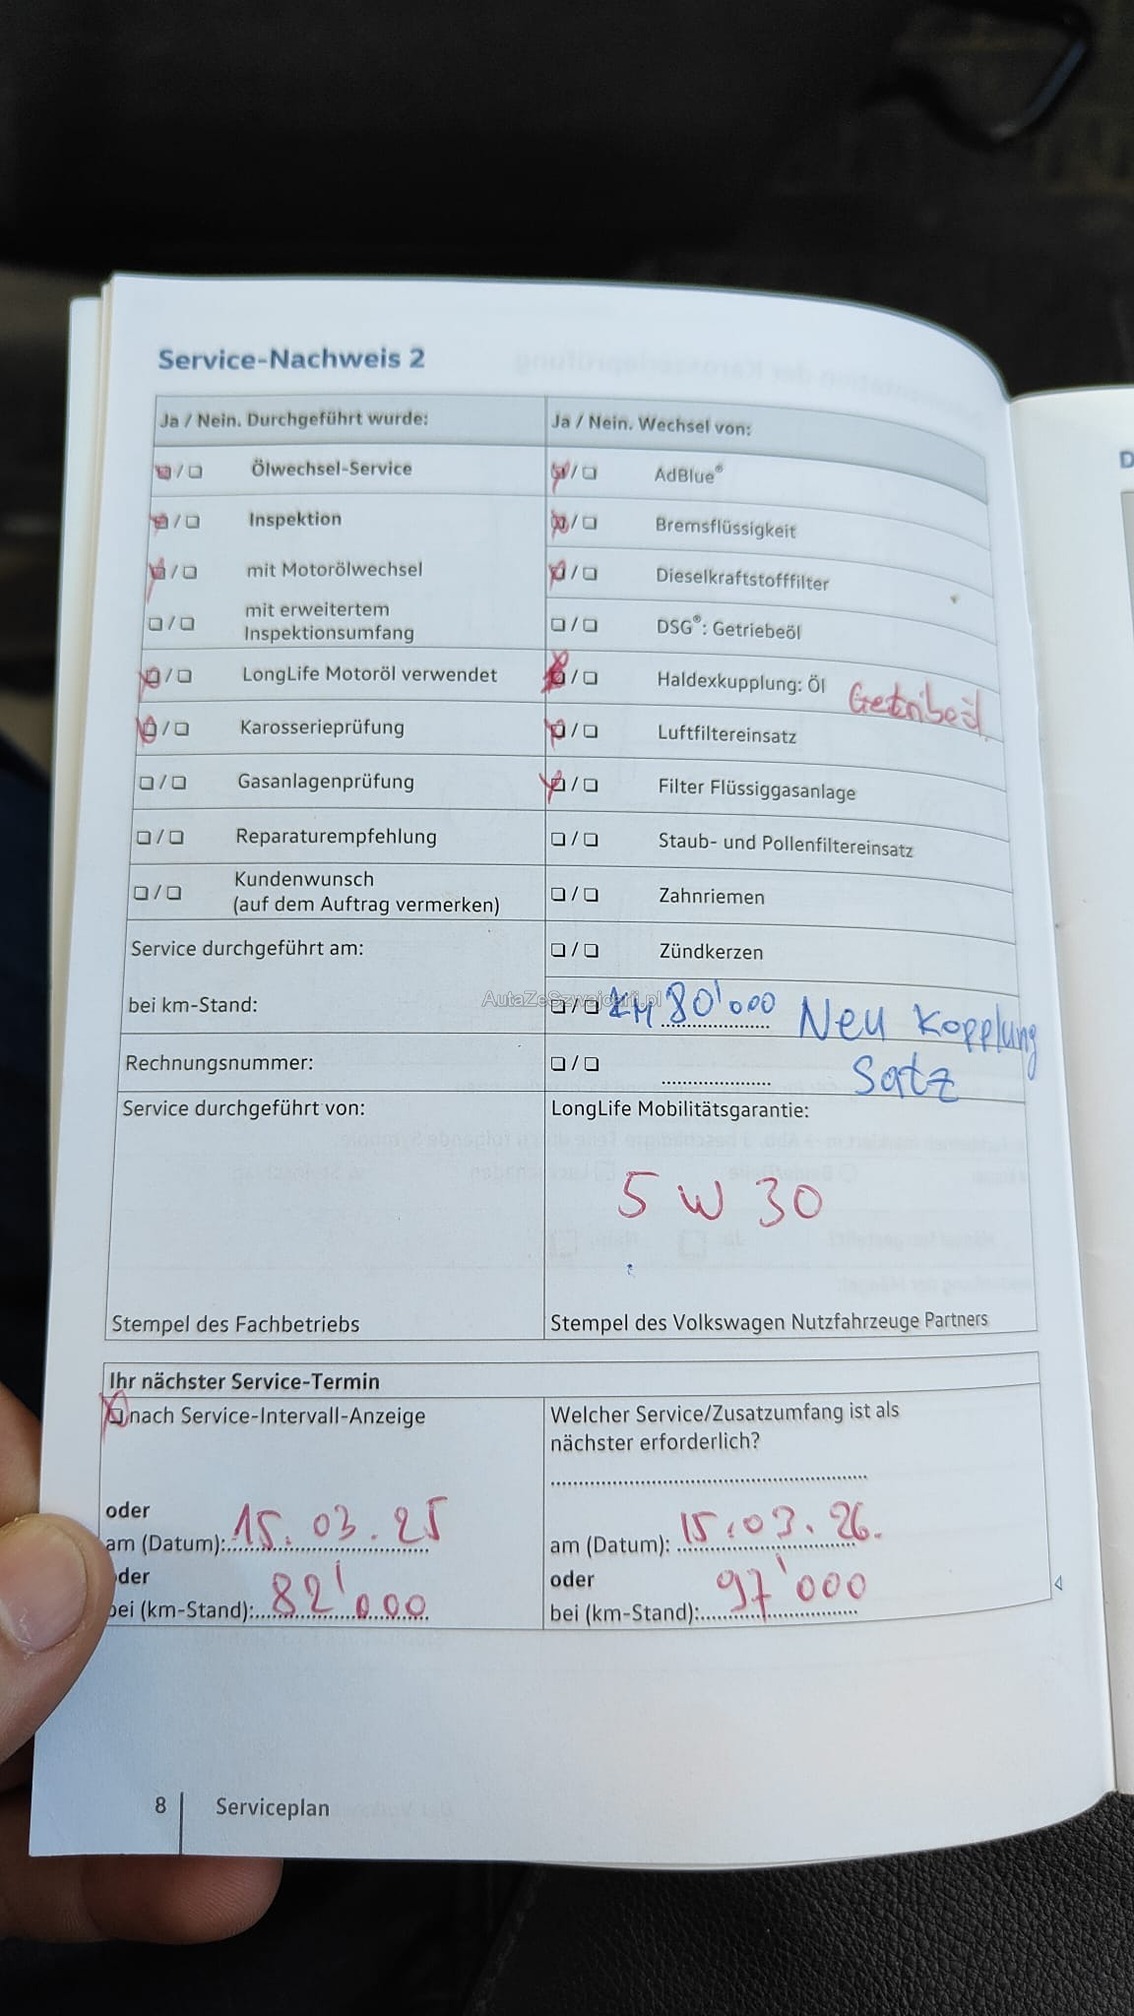 Service-Nachweis 2
Ja / Nein. Durchgeführt wurde:
Ja / Nein. Wechsel von:
☒/☐ Ölwechsel-Service
☒/☐ AdBlue®
☒/☐ Inspektion
☒/☐ Bremsflüssigkeit
☒/☐ mit Motorölwechsel
☒/☐ Dieselkraftstofffilter
☐/☐ mit erweitertem
Inspektionsumfang
☐/☐ DSG®: Getriebeöl
☒/☐ LongLife Motoröl verwendet
☒/☐ Haldexkupplung: Öl Getribeöl
☒/☐ Karosserieprüfung
☒/☐ Luftfiltereinsatz
☐/☐ Gasanlagenprüfung
☒/☐ Filter Flüssiggasanlage
☐/☐ Reparaturempfehlung
☐/☐ Staub- und Pollenfiltereinsatz
☐/☐ Kundenwunsch
(auf dem Auftrag vermerken)
☐/☐ Zahnriemen
Service durchgeführt am:
☐/☐ Zündkerzen
bei km-Stand:
AutaZeSzwajcarii.pl
☐/☐ KM 80'000 Neu Kopplung
Satz
Rechnungsnummer:
☐/☐
Service durchgeführt von:
LongLife Mobilitätsgarantie:
5 W 30
Stempel des Fachbetriebs
Stempel des Volkswagen Nutzfahrzeuge Partners
Ihr nächster Service-Termin
☒ nach Service-Intervall-Anzeige
Welcher Service/Zusatzumfang ist als
nächster erforderlich?
oder
am (Datum): 15.03.25
am (Datum): 15.03.26.
oder
oder
bei (km-Stand): 82'000
bei (km-Stand): 97'000
8 Serviceplan
D